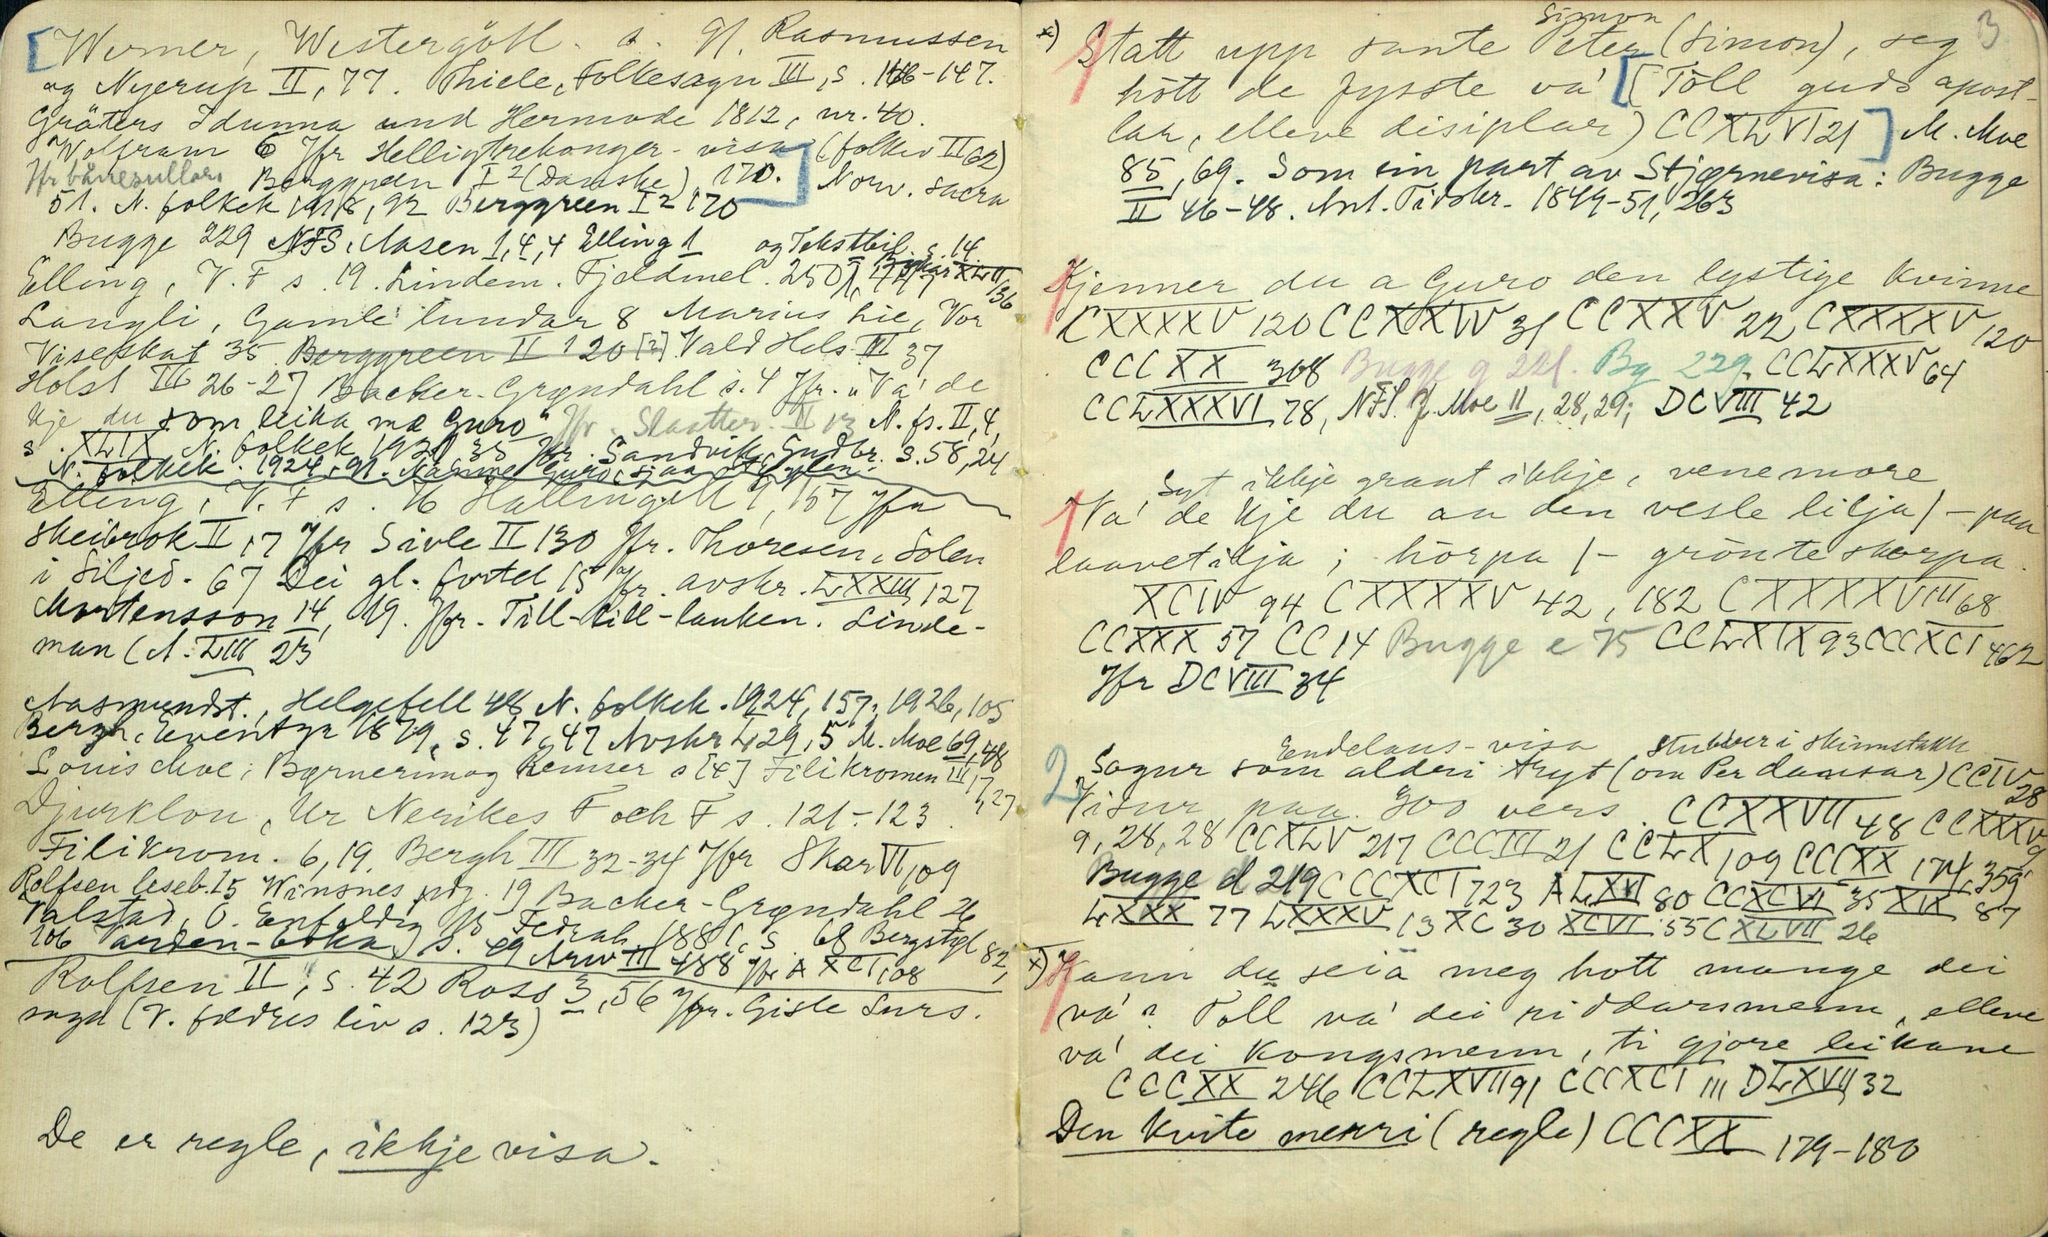 [Werner, Westergötl. s. 91. Rasmussen
og Nyerup II, 77. Thiele, Folkesagn III, s. 146-147.
Gräters Idunna und Hermode 1812, nr. 40.
Wolfram 6 Jfr Helligtrekonger-visa (folkev II 62)
Jfr bånesullar Berggreen I 2 (Danske) 170.] Norv. sacra
51. N. folkek 1918, 92 Berggreen I 2 170
Bugge 229 NFS. Aasen 1, 4, 4 Elling 1 og Tekstbil. s. 14.
Elling, V. F s. 19. Lindem. Fjeldmel. 250
Langli, Gamle lundar 8 Marius Lie, Vor
Viseskat 35 Berggreen II 1 20 [2] Vald Hels III 37
Holst III 26-27 Backer-Grøndahl s. 4 Jfr. "Va' de
kje du som leika mæ Guro" Jfr. Slaatter. II 13 N. fs. II, 4,
s. XLIX N. folkek 1920, 35 Jfr. Sandvik, Gudbr. s. 58, 24
N. folkek. 1924, 91.
Elling, V. F s. 16 Hallingdøl 1, 157 Jfr
Skeibrok II, 17 Jfr Sivle II 130 Jfr. Thoresen, Solen
i Siljed. 67 Dei gl. fortel 15 Jfr. avskr. LXXIII 127
Mortensson 14, 19. Jfr. Till-till-tanken. Linde-
man (A. LIII 23
Aasmundst., Helgefell 48 N. folkek. 1924, 157, 1926, 105
Bergh, Eventyr 1879, s. 47, 47 Avskr L 29, 5 M. Moe 69, 48
Louis Moe, Børnerim og Remser s [4] Filikromen III, 17, 27
Djurklou, Ur Nerikes F och F s. 121-123.
Filikrom. 6, 19. Bergh III 32-34 Jfr Skar VI, 109
Rolfsen leseb. 15 Winsnes 19 Backer-Grøndahl 26
Valstad, O. Enfoldig Fedrah. 1881, s. 68 Bergstgl 82,
106 anden-boka) s. 49 Arw III 488 Jfr A XCI, 108
Rolfsen II, s. 42 Ross 3, 56 Jfr. Gisle Surs.
saga (V. fædres liv s. 123)
De er regle, ikkje visa.
3
Simon
x) 1 Statt upp sante Peter (Simon), seg
hött de fysste va' [(Töll guds apost-
lar, elleve disiplar) CCXLVI 21] M. Moe
85, 69. Som ein part av Stjørnevisa: Bugge
II 46-48. Ant. Tidskr. 1849-51, 263
1 Kjenner du a Guro den lystige kvinne
CXXXXV 120 CCXXIV 31 CCXXV 22 CXXXXV 120
CCCXX 368 Bugge g 221. Bg 229. CCLXXXV 64
CCLXXXVI 78, NFS. J. Moe II, 28, 29; DCVIII 42
Syt ikkje graat ikkje, venemore
1 Va' de kje du aa den vesle lilja /- paa
laavetilja; hörpa /- grönteskorpa.
XCIV 94 CXXXXV 42, 182 CXXXXVIII 68
CCXXX 57 CC 14 Bugge e 75 CCLXIX 93 CCCXCI 462
Jfr DCVIII 34
Eendelaus-visa Stubber i skinnstakk
2 Sogur som alderi tryt (om Per dansar) CCIV 28
Visur paa 300 vers. CCXXVII 48 CCXXXV 9
9, 28, 28 CCXLV 217 CCCIII 21 CCLX 109 CCCXX 174, 359
Bugge d 219 CCCXCI 723 A LXVI 80 CCXCVI 35 XIX 87
LXXX 77 LXXXV 13 XC 30 XCVI 55 CXLVII 26
x) 1 Kann du seia meg hott mange dei
va'? Toll va' dei riddarsmenn, elleve
va' dei kongsmenn, ti gjore leikane
CCCXX 246 CCLXVII 91 CCCXCI 111 DLXVII 32
Den kvite merri (regle) CCCXX 179-180